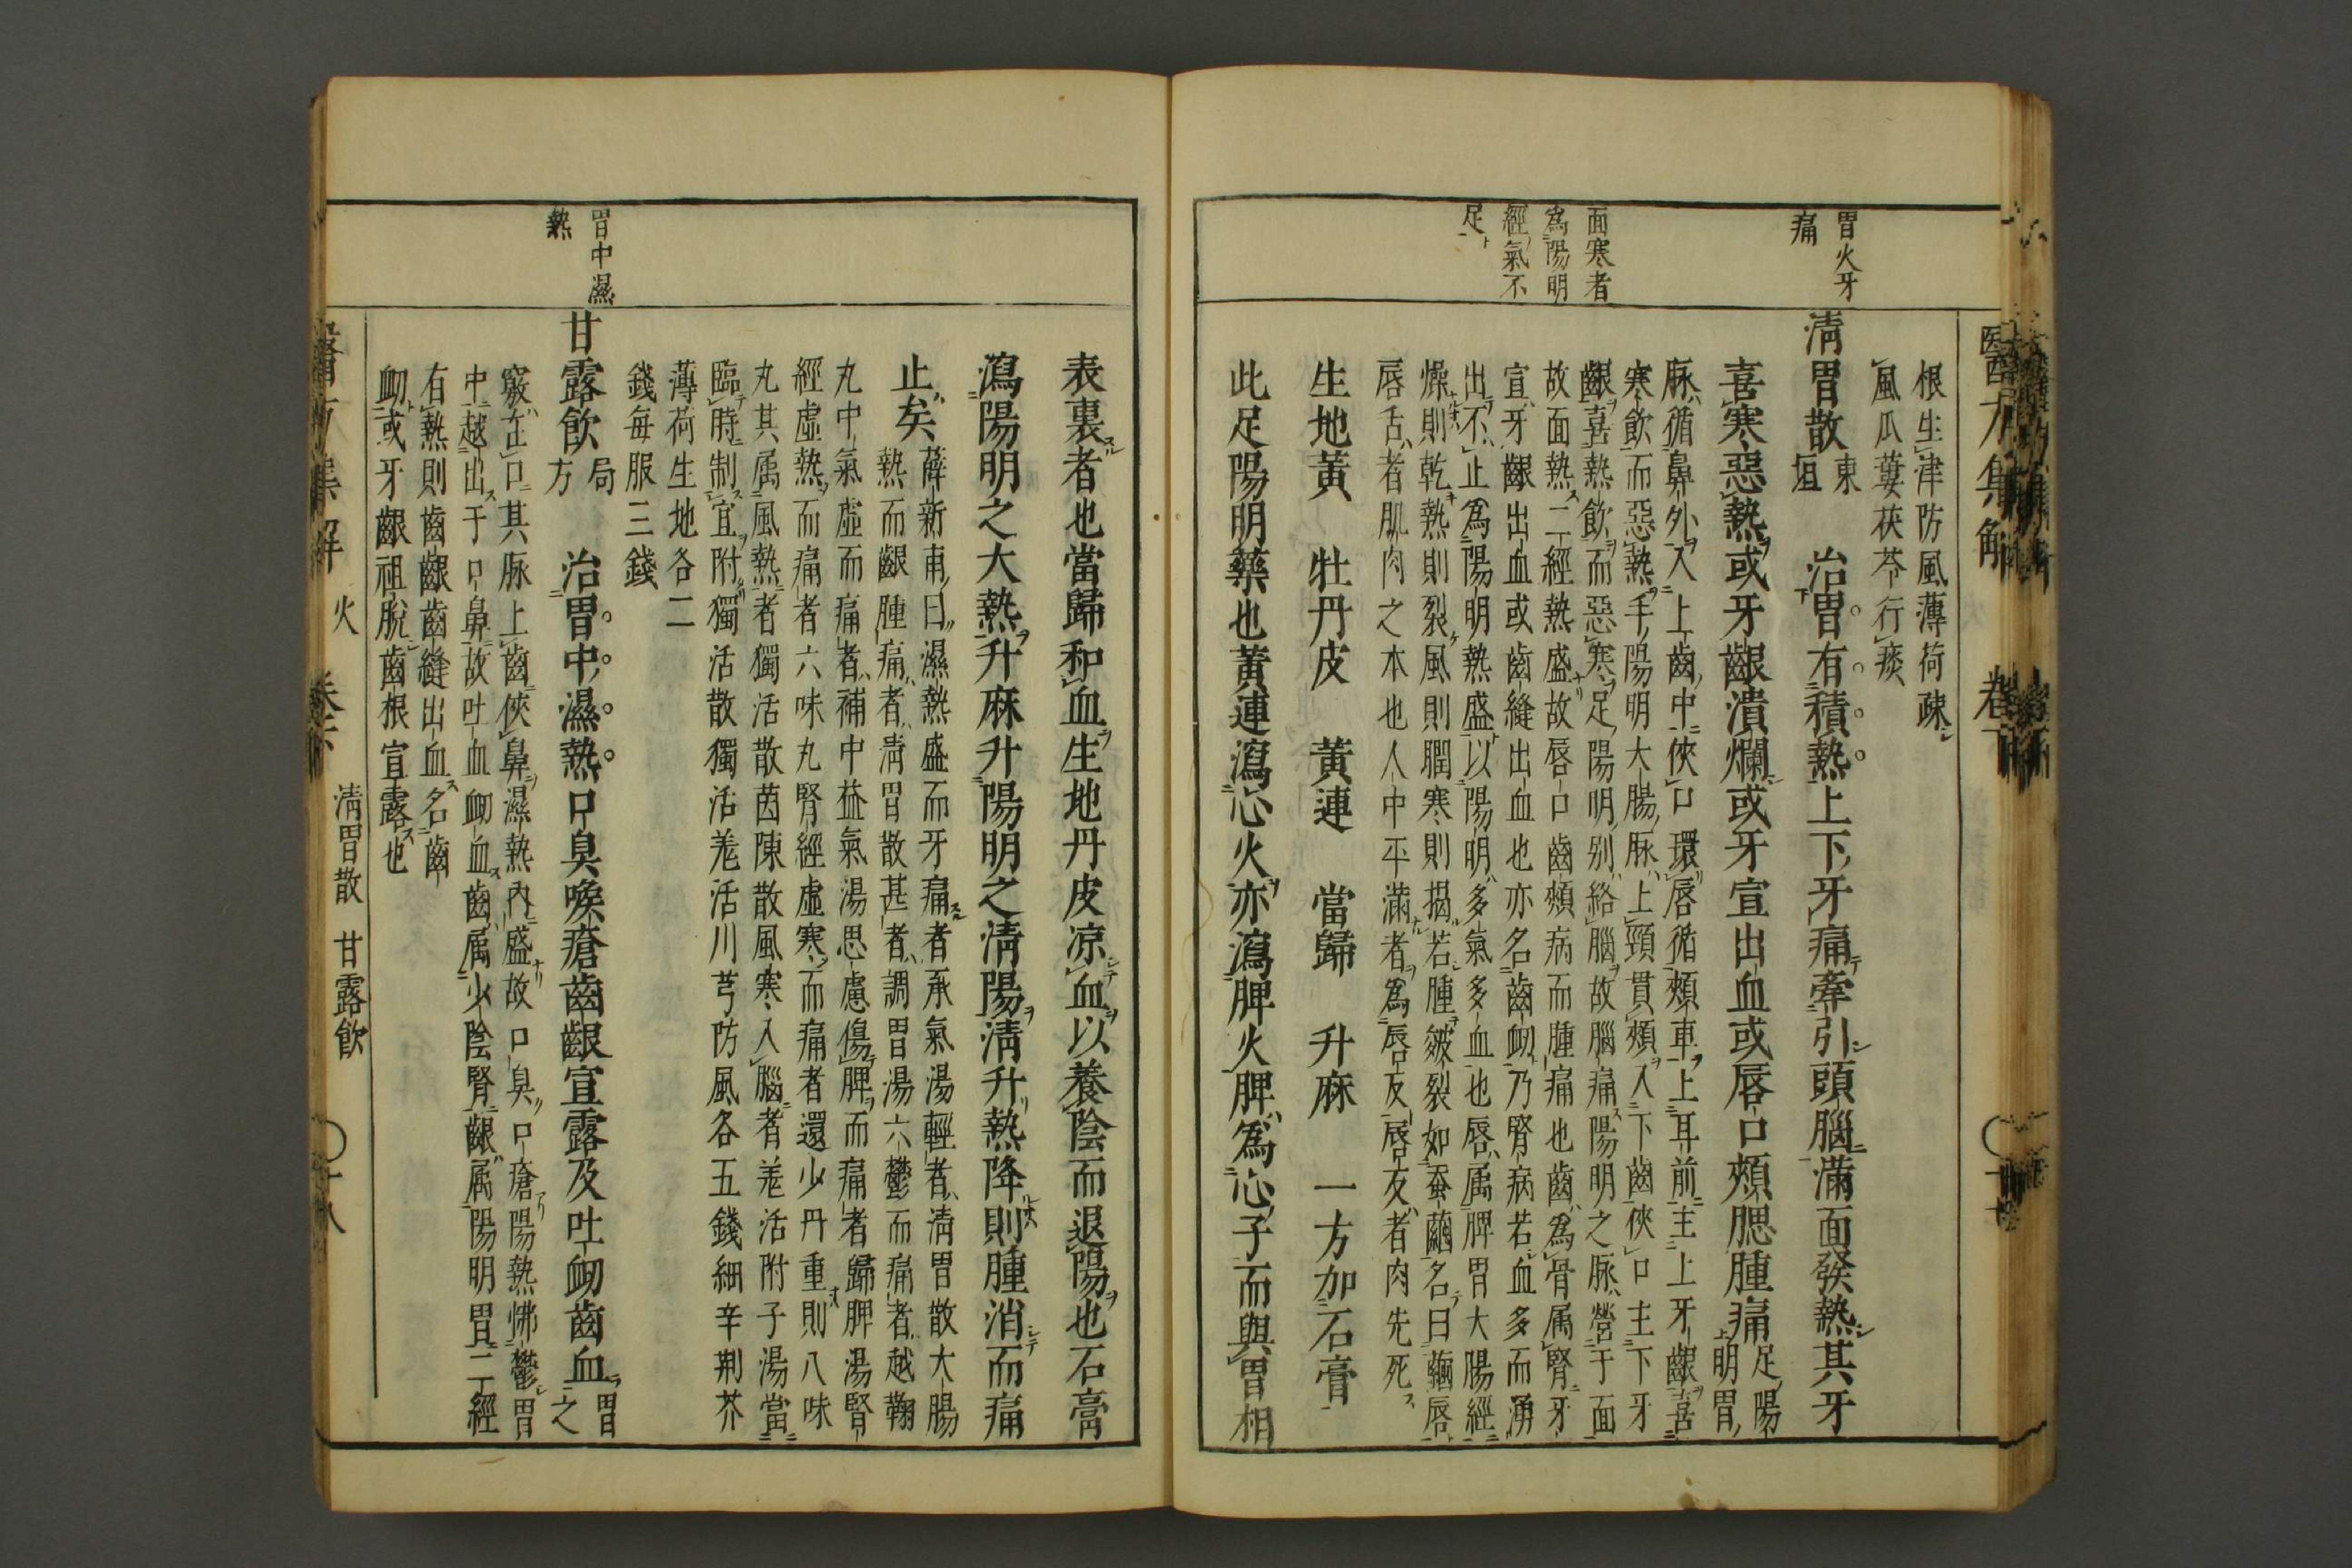 醫方集解
卷下
胃火牙
痛
面寒者
爲陽明
經氣不
足
根生津防風薄荷疎
風瓜蔞茯苓行痰
清胃散 東垣 治胃有積熱上下牙痛牽引頭腦滿面發熱其牙
喜寒惡熱或牙齦潰爛或牙宣出血或唇口頰腮腫痛 足陽
明胃
脉循鼻外入上齒中俠口環唇循頰車上耳前主上牙齦喜
寒飲而惡熱手陽明大腸脉上頸貫頰入下齒俠口主下牙
齦喜熱飲而惡寒足陽明別絡腦故腦痛陽明之脉營于面
故面熱二經熱盛故唇口齒頰病而腫痛也齒爲骨属腎牙
宣牙齦出血或齒縫出血也亦名齒衂乃腎病若血多而湧
出不止爲陽明熱盛以陽明多氣多血也唇属脾胃大陽經
燥則乾熱則裂風則瞤寒則揭若腫皺裂如蚕繭名曰繭唇
唇舌者肌肉之本也人中平滿者爲唇反唇反者肉先死
生地黄 牡丹皮 黄連 當歸 升麻 一方加石膏
此足陽明藥也黄連瀉心火亦瀉脾火脾爲心子而與胃相
表裏者也當歸和血生地丹皮凉血以養陰而退陽也石膏
瀉陽明之大熱升麻升陽明之清陽清升熱降則腫消而痛
止矣 薛新甫曰濕熱盛而牙痛者承氣湯輕者清胃散大腸
熱而齦腫痛者清胃散甚者調胃湯六鬱而痛者越鞠
丸中氣虛而痛者補中益氣湯思慮傷脾而痛者歸脾湯腎
經虛熱而痛者六味丸腎經虛寒而痛者還少丹重則八味
丸其属風熱者獨活散茵陳散風寒入腦者羌活附子湯當
臨時制宜附獨活散獨活羌活川芎防風各五錢細辛荆芥
薄荷生地各二
錢每服三錢
胃中濕
熱
甘露飲 局方 治胃中濕熱口臭喉瘡齒齦宣露及吐衂齒血 胃之
竅在口其脉上齒俠鼻濕熱内盛故口臭口瘡陽熱怫鬱胃
中越出于口鼻故吐血衂血齒属少陰腎齦属陽明胃二經
有熱則齒齦齒縫出血名齒
衂或牙齦袒脫齒根宣露也
醫方集解 火 卷下 清胃散 甘露飲 〇十八